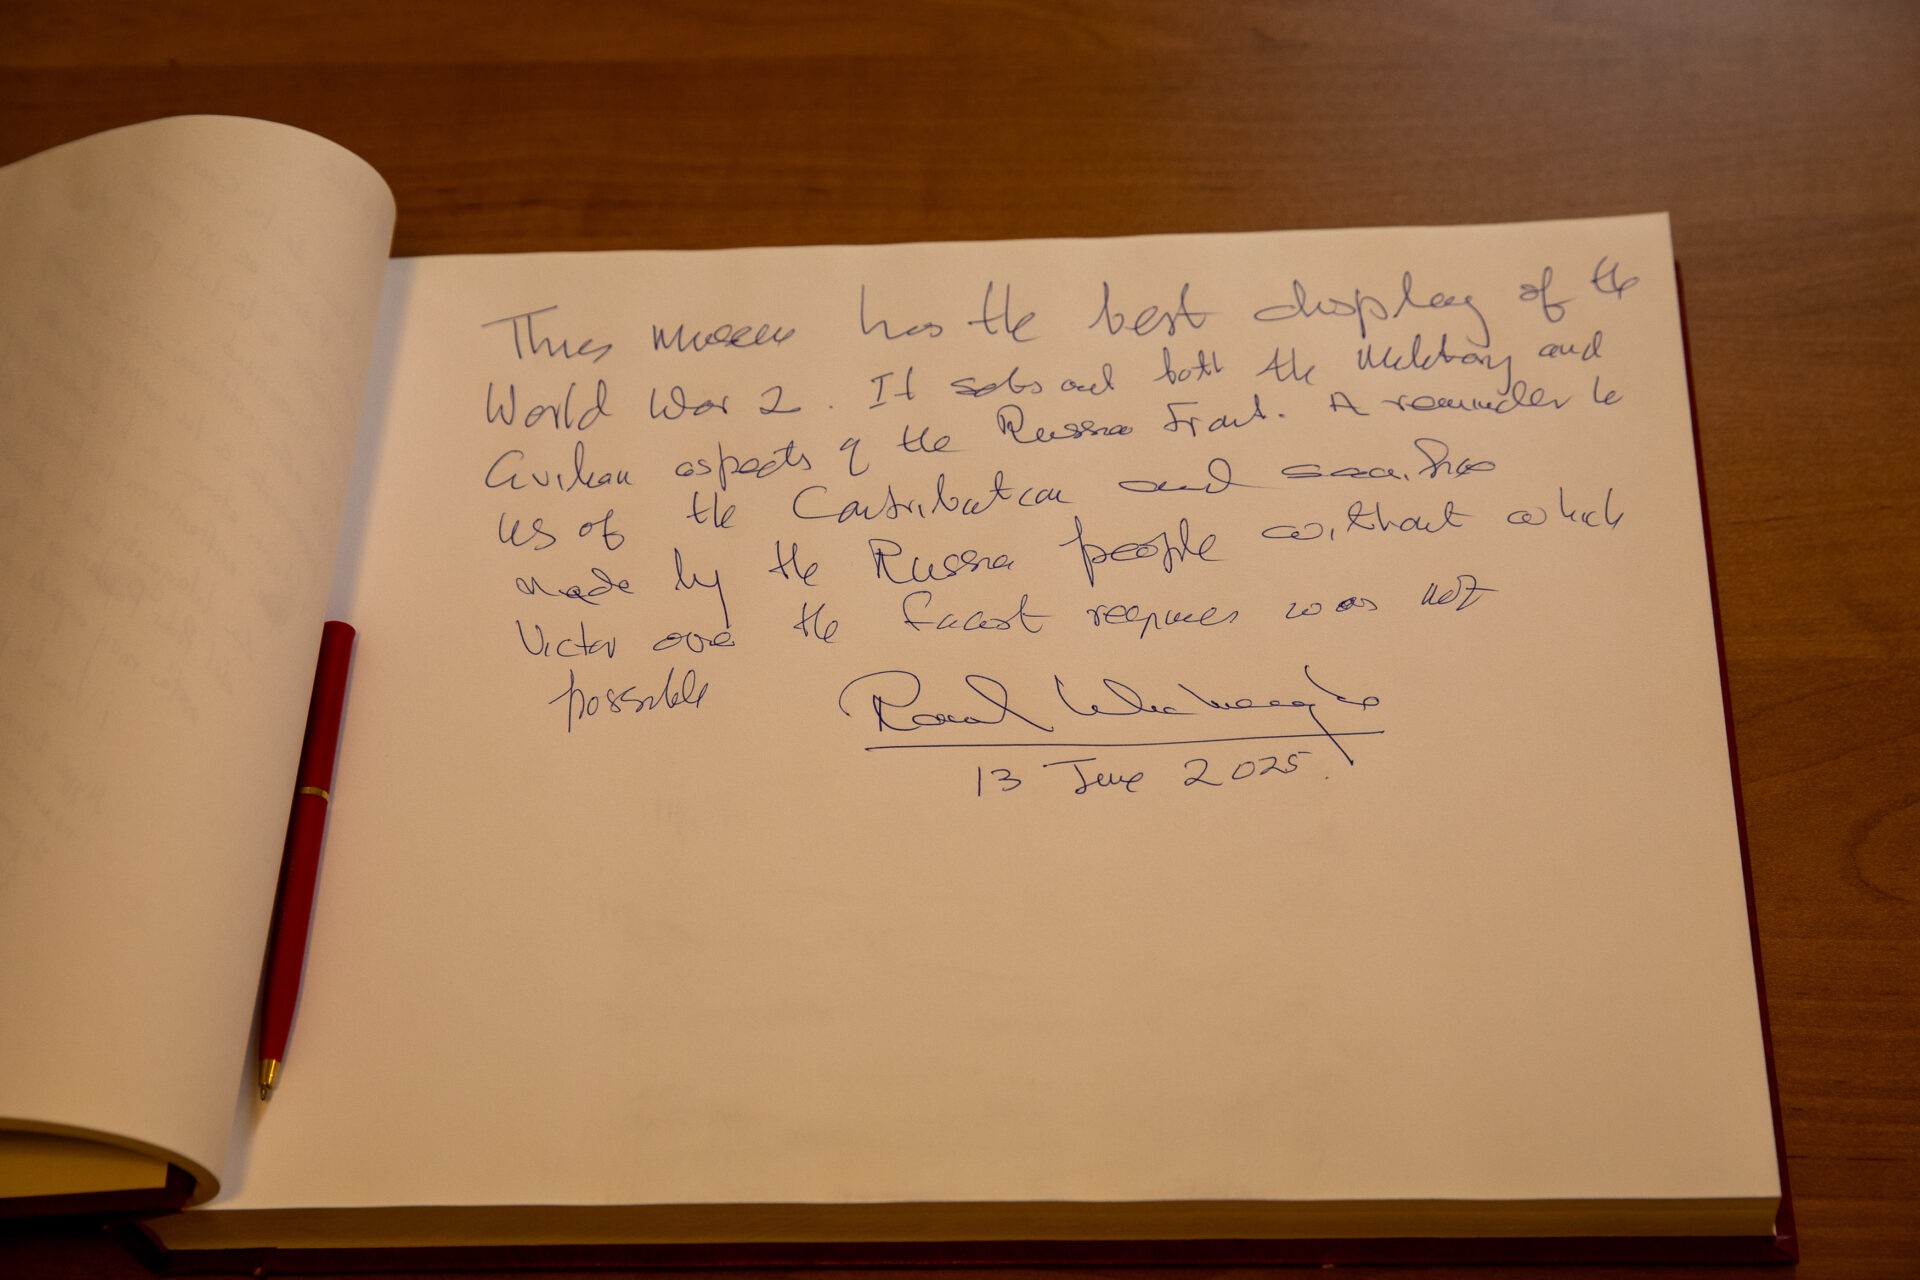 This museum has the best display of the
World War 2. It sets out both the Military and
Civilian aspects of the Russia Front. A reminder to
us of the Contribution and sacrifice
made by the Russia people without which
Victor over the facist regimes was not
possible
13 June 2025.